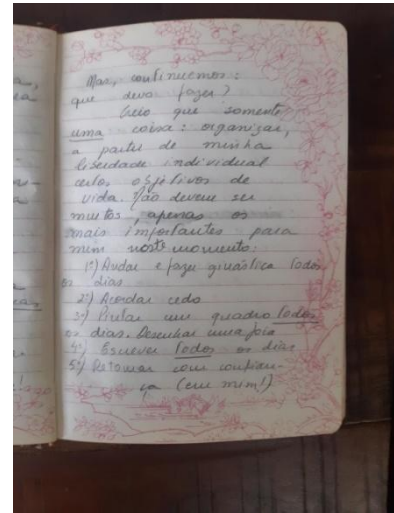 Mas, continuemos:
que devo fazer?
Creio que somente
uma coisa: organizar,
a partir de minha
liberdade individual
certos objetivos de
vida. Não devem ser
muitos, apenas os
mais importantes para
mim neste momento:
1º) Andar e fazer ginástica todos
os dias
2º) Acordar cedo
3º) Pintar um quadro todos
os dias. Desenhar uma joia
4º) Escrever todos os dias
5º) Retomar com confian-
ça (em mim!)